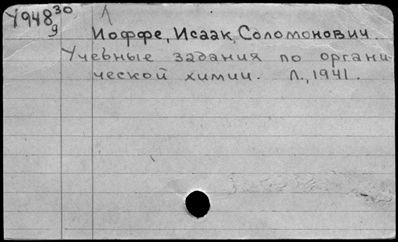 У948 30
9
Иоффе, Исаак Соломонович.
Учебные задания по органи-
ческой химии. Л., 1941.